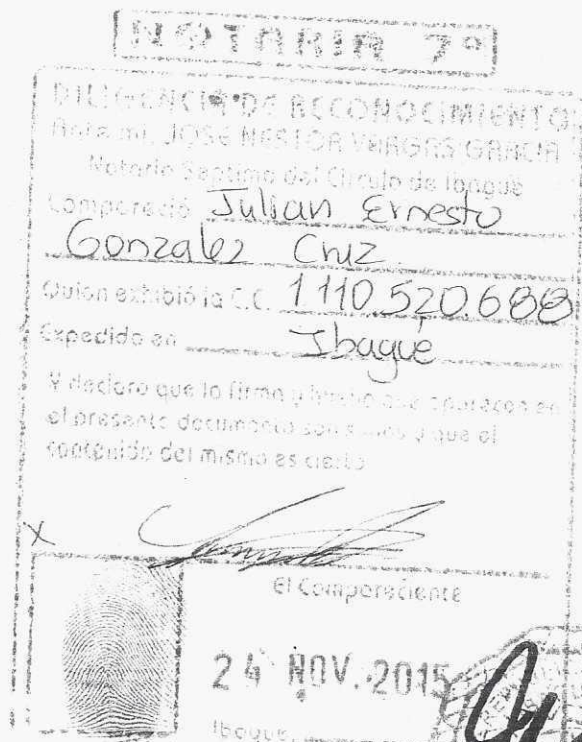 NOTARIA 7º
DILIGENCIA DE RECONOCIMIENTO
Ante mi, JOSÉ NESTOR VARGAS GARCIA
Notario Septimo del Circulo de Ibague
Compareció Julian Ernesto
Gonzalez Cruz.
Quien exhibió la C.C. 1.110.520.688
Expedida en Ibague
Y declaro que la firma y huella que aparecen en
el presente documento son suyas y que el
contenido del mismo es cierto
X
El Compareciente
24 NOV. 2015
Ibague,